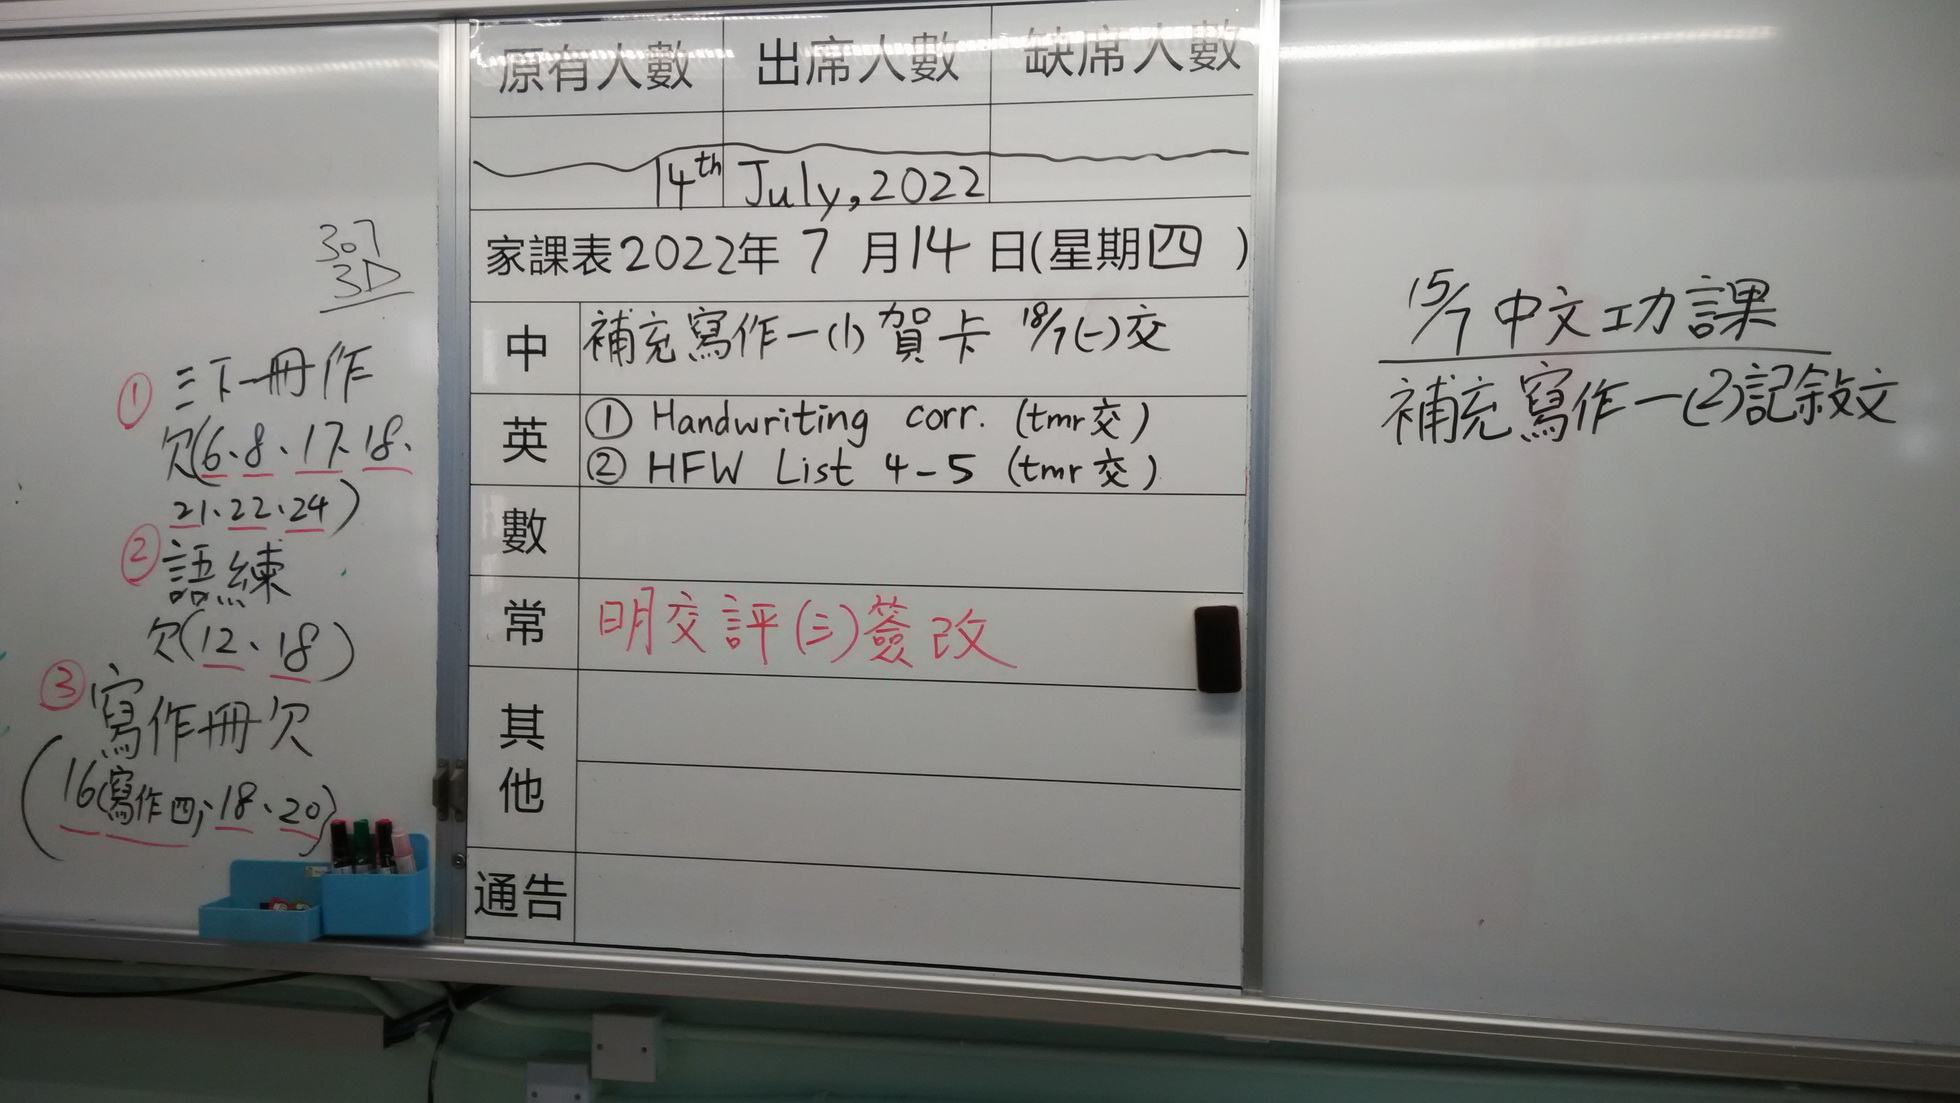 307
3D
① 三下一冊作
欠(6、8、17、18、
21、22、24)
② 語練
欠(12、18)
③ 寫作冊欠
(16(寫作四)、18、20)
原有人數 出席人數 缺席人數
14th July, 2022
家課表2022年 7 月14 日(星期四 )
中 補充寫作一(1) 賀卡 18/7(一)交
英 ① Handwriting corr. (tmr交)
② HFW List 4-5 (tmr交)
數
常 明交評(三)簽改
其他
通告
15/7 中文功課
補充寫作一(2)記敘文